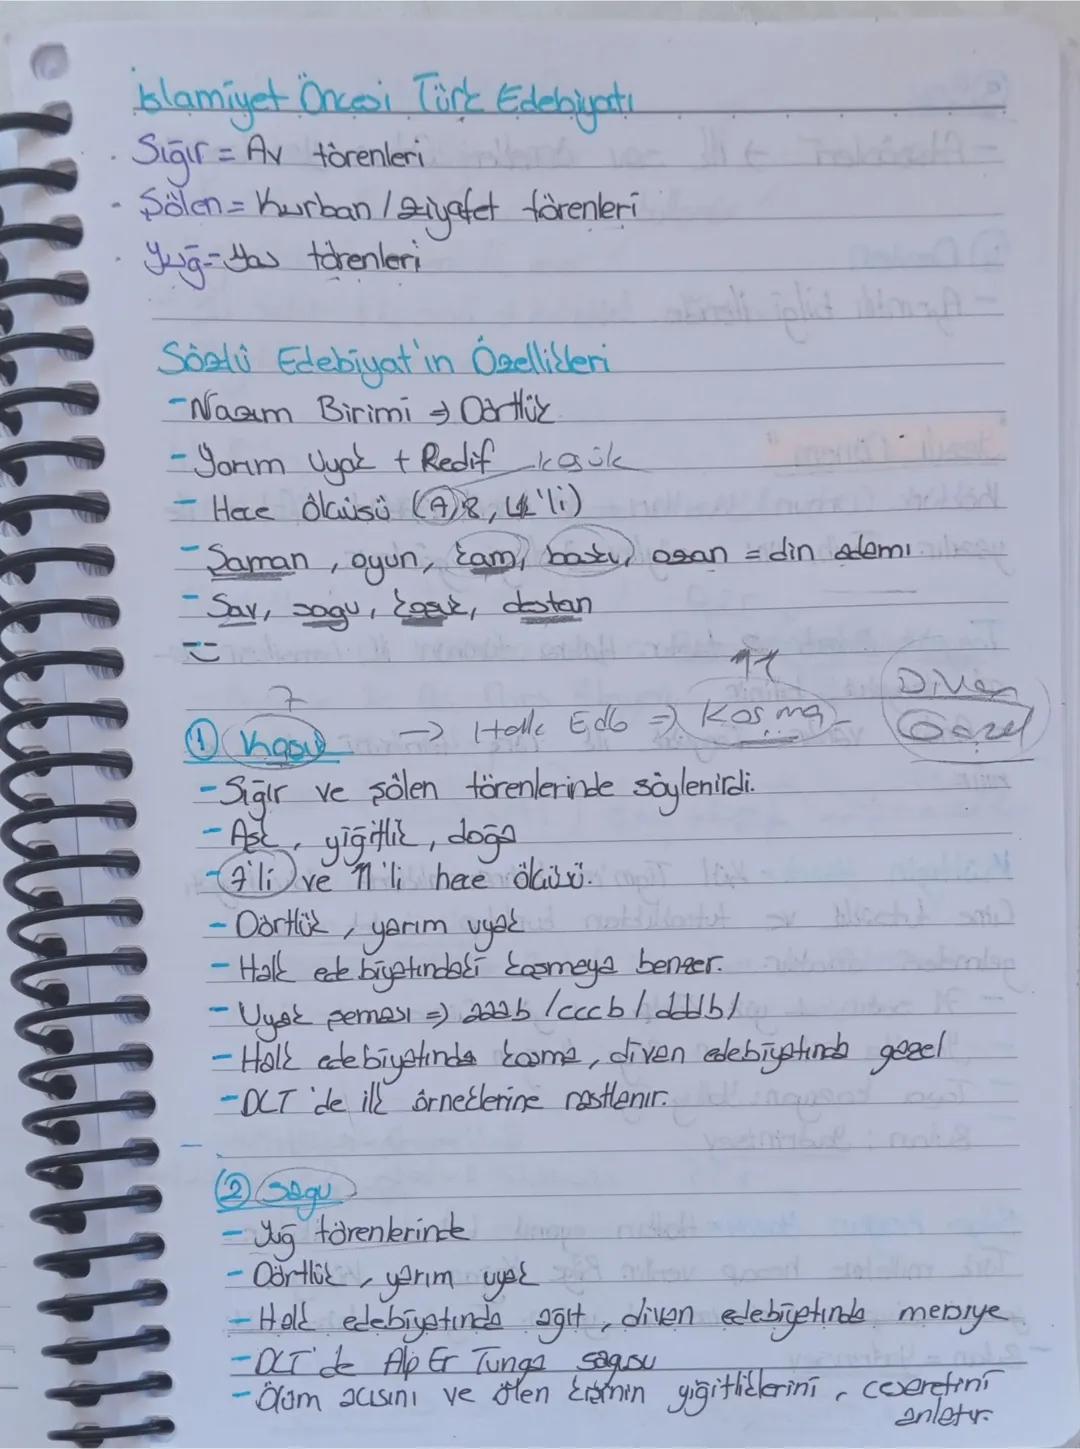 İslamiyet Öncesi Türk Edebiyatı
. Sığır = Av törenleri
- Şölen = Kurban / ziyafet törenleri
. Yuğ = Yas törenleri
Sözlü Edebiyat'ın Özellikleri
- Nazım Birimi → Dörtlük
- Yarım Uyak + Redif koşuk
- Hece ölçüsü (7, 8, 'li)
- Şaman, oyun, kam, baksı, ozan = din adamı
- Sav, sagu, koşuk, destan
7
11
① Koşuk → Halk Edb ⇒ Koşma
Divan
Gazel
- Sığır ve şölen törenlerinde söylenirdi.
- Aşk, yiğitlik, doğa
- 7'li ve 11'li hece ölçüsü.
- Dörtlük, yarım uyak
- Halk edebiyatındaki koşmaya benzer.
- Uyak şeması ⇒ aaab / cccb / dddb /
- Halk edebiyatında koşma, divan edebiyatında gazel
- DLT'de ilk örneklerine rastlanır.
② Sagu
- Yuğ törenlerinde
- Dörtlük, yarım uyak
- Halk edebiyatında ağıt, divan edebiyatında mersiye
- DLT'de Alp Er Tunga sagusu
- Ölüm acısını ve ölen kişinin yiğitliklerini, cesaretini
anlatır.